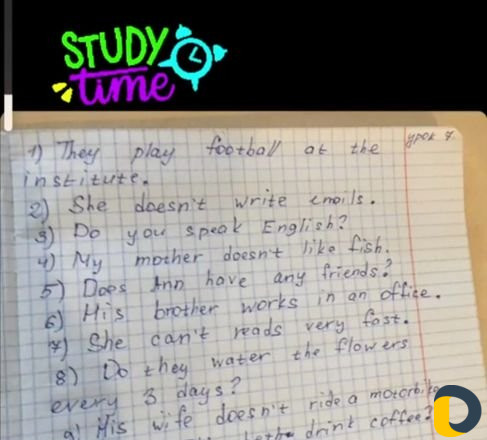 STUDY
time
урок 7.
1) They play football at the
institute.
2) She doesn't write emails.
3) Do you speak English?
4) My mother doesn't like fish.
5) Does Ann have any friends?
6) His brother works in an office.
7) She can't reads very fast.
8) Do they water the flowers
every 3 days?
9) His wife doesn't ride a motorbike
drink coffee?